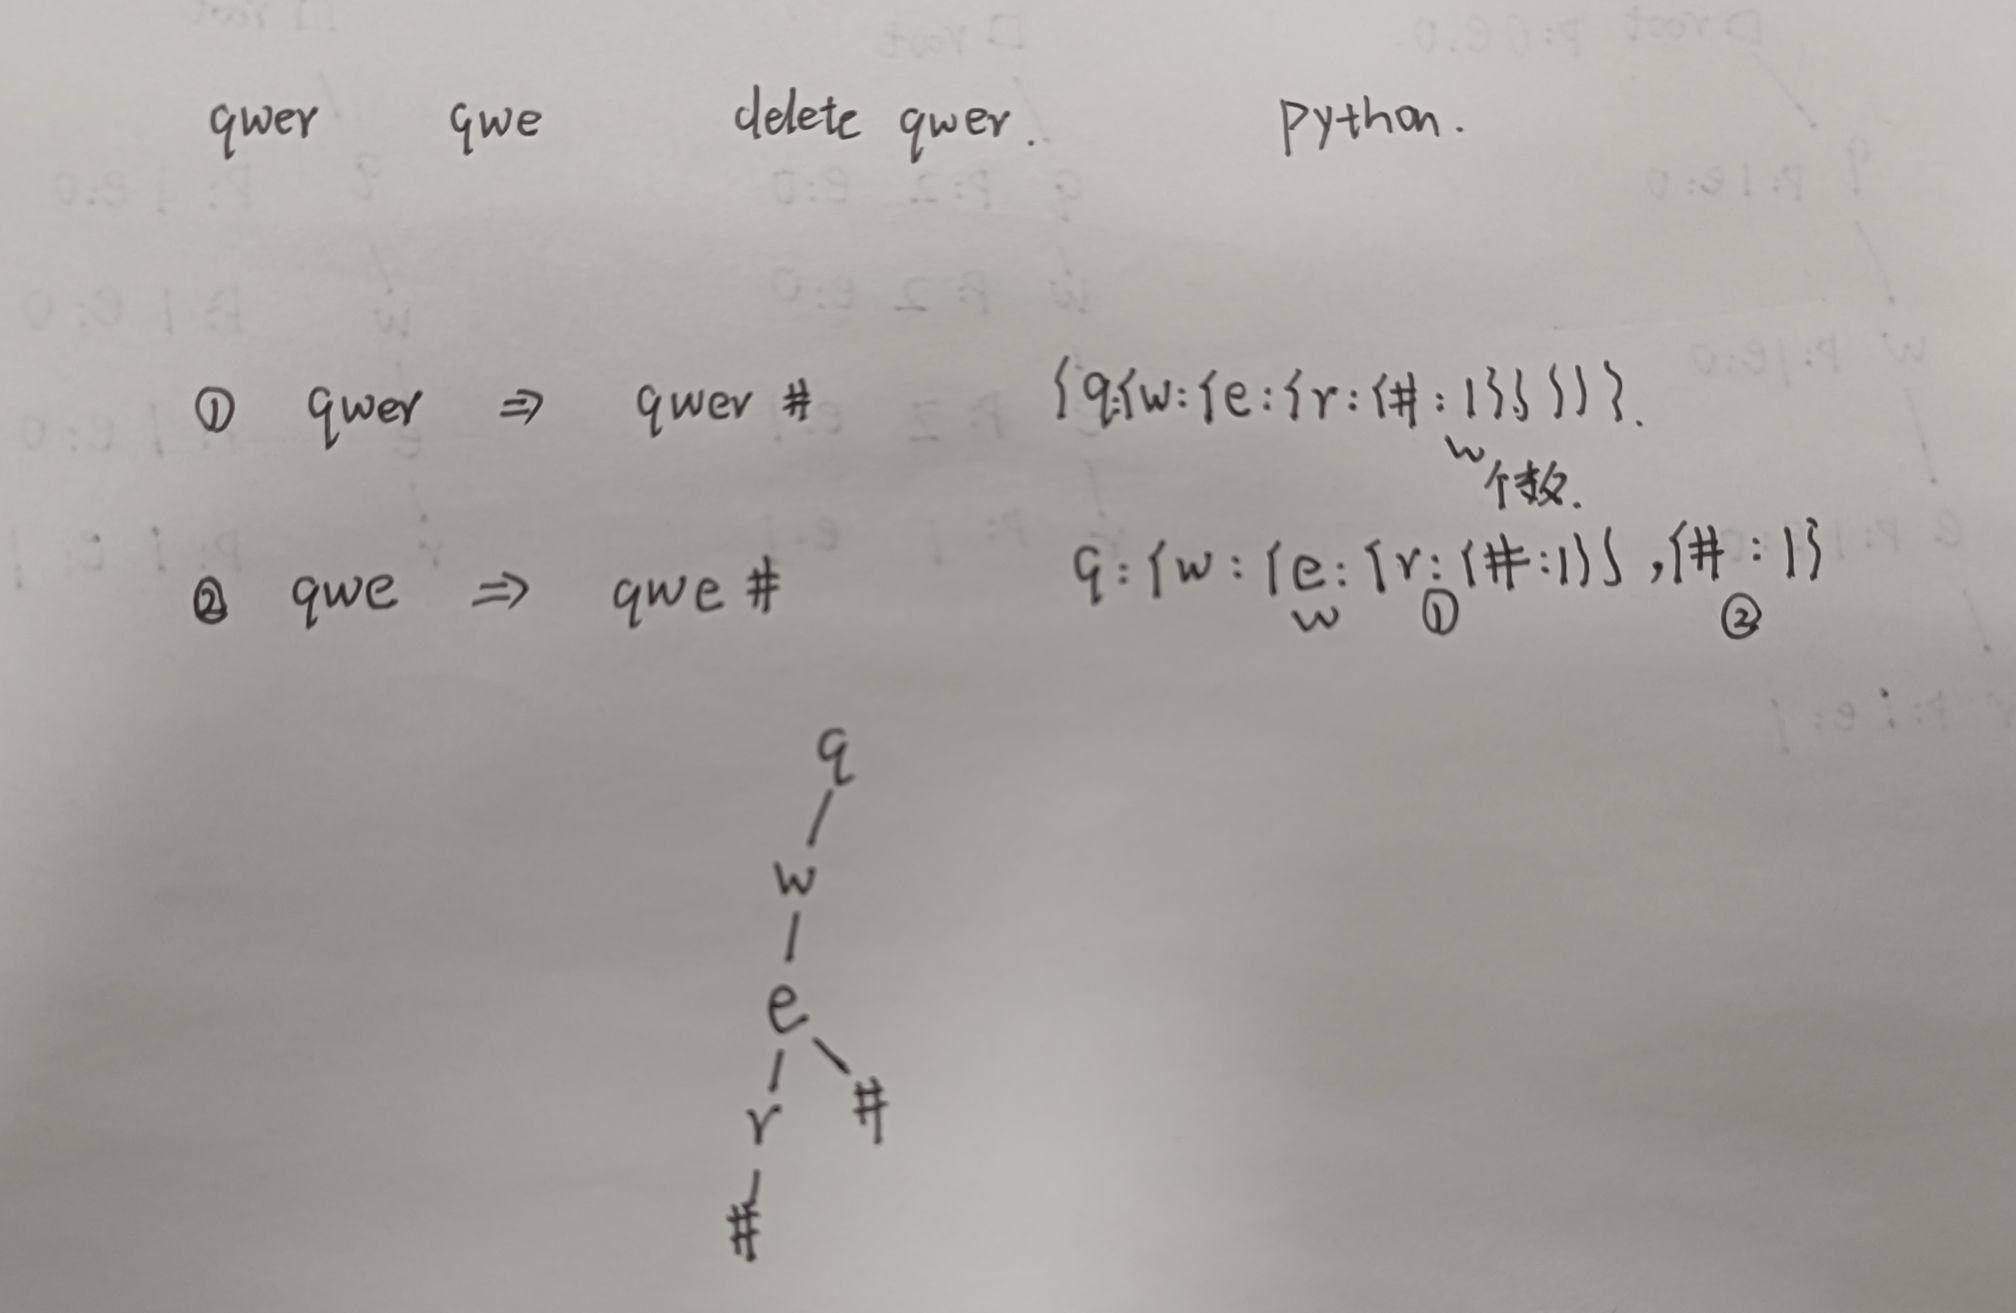 qwer qwe delete qwer. python.
① qwer ⇒ qwer # {q:{w:{e:{r:{#:1}}}}}.
w 个数.
② qwe ⇒ qwe # q:{w:{e:{r:{#:1}},{#:1}
w ① ②
q
w
e
r #
#